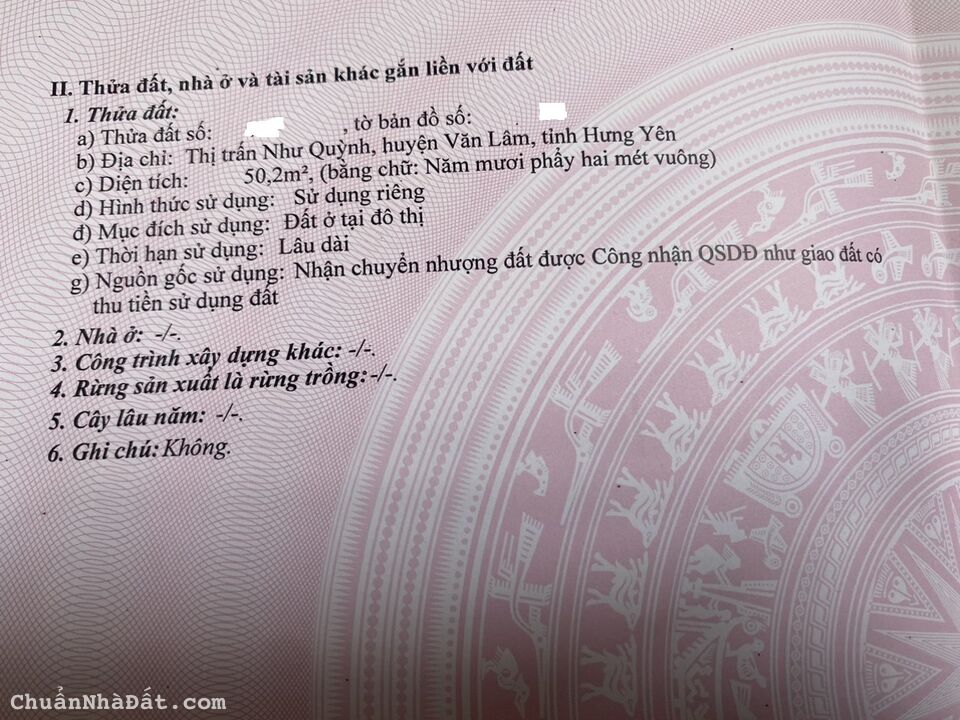 II. Thửa đất, nhà ở và tài sản khác gắn liền với đất
1. Thửa đất:
a) Thửa đất số: , tờ bản đồ số:
b) Địa chỉ: Thị trấn Như Quỳnh, huyện Văn Lâm, tỉnh Hưng Yên
c) Diện tích: 50,2m², (bằng chữ: Năm mươi phẩy hai mét vuông)
d) Hình thức sử dụng: Sử dụng riêng
đ) Mục đích sử dụng: Đất ở tại đô thị
e) Thời hạn sử dụng: Lâu dài
g) Nguồn gốc sử dụng: Nhận chuyển nhượng đất được Công nhận QSDĐ như giao đất có
thu tiền sử dụng đất
2. Nhà ở: -/-.
3. Công trình xây dựng khác: -/-.
4. Rừng sản xuất là rừng trồng: -/-.
5. Cây lâu năm: -/-.
6. Ghi chú: Không.
ChuẩnNhàĐất.com